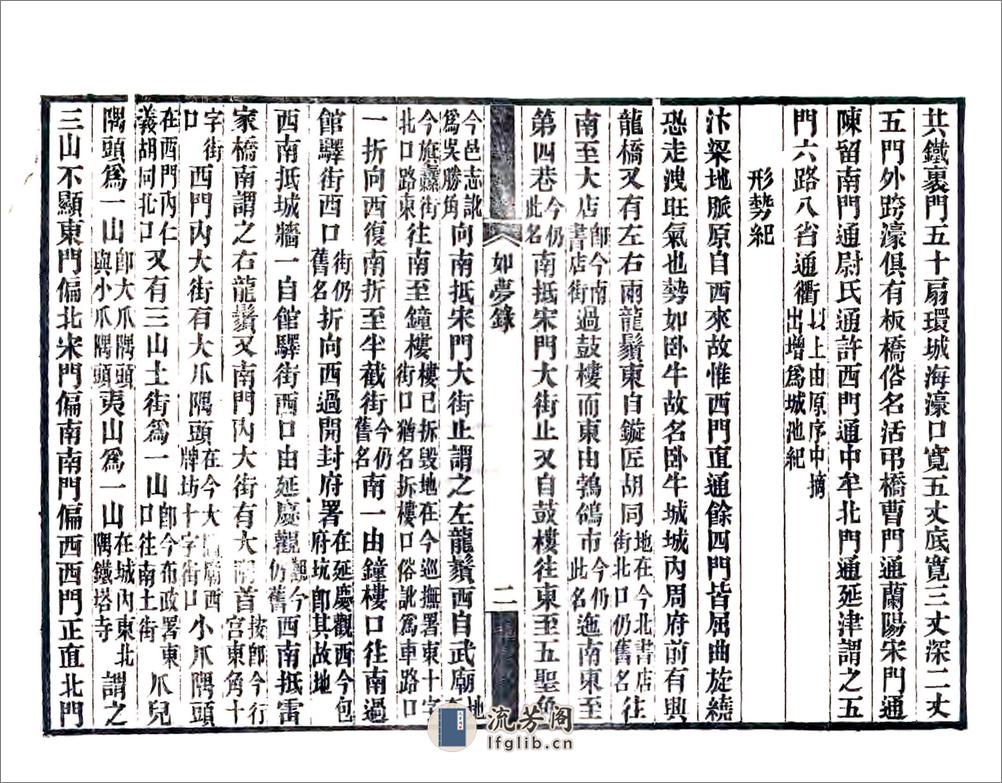 共鐵裏門五十扇環城海濠口寬五丈底寬三丈深二丈
五門外跨濠俱有板橋俗名活弔橋曹門通蘭陽宋門通
陳留南門通尉氏通許西門通中牟北門通延津謂之五
門六路八省通衢以上由原序中摘出增爲城池紀
形勢紀
汴梁地脈原自西來故惟西門直通餘四門皆屈曲旋繞
恐走洩旺氣也勢如臥牛故名臥牛城城內周府前有興
龍橋又有左右兩龍鬚東自鏇匠胡同地在今北書店街北口仍舊名往
南至大店卽今南書店街過鼓樓而東由鵓鴿市今仍此名迤南東至
第四巷今仍此名南抵宋門大街止又自鼓樓往東至五聖角
如夢錄
二
今邑志訛爲吳勝角向南抵宋門大街止謂之左龍鬚西自武廟地
今旗纛街北口路東往南至鐘樓樓已拆毀地在今巡撫署東十字街口猶名拆樓口俗訛爲車路口
一折向西復南折至半截街今仍舊名南一由鐘樓口往南過
館驛街西口街仍舊名折向西過開封府署在延慶觀西今包府坑卽其故地
西南抵城牆一自館驛街西口由延慶觀觀今仍舊西南抵雷
家橋南謂之右龍鬚又南門內大街有大首按卽今行宮東角十
字街口西門內大街有大爪隅頭在今大廟西牌坊十字街口小爪隅頭
在西門內仁義胡同北口又有三山土街爲一山卽今布政署東口往南土街爪兒
隅頭爲一山卽大爪隅頭與小爪隅頭夷山爲一山在城內東北隅鐵塔寺謂之
三山不顯東門偏北宋門偏南南門偏西西門正直北門
流芳閣
lfglib.cn